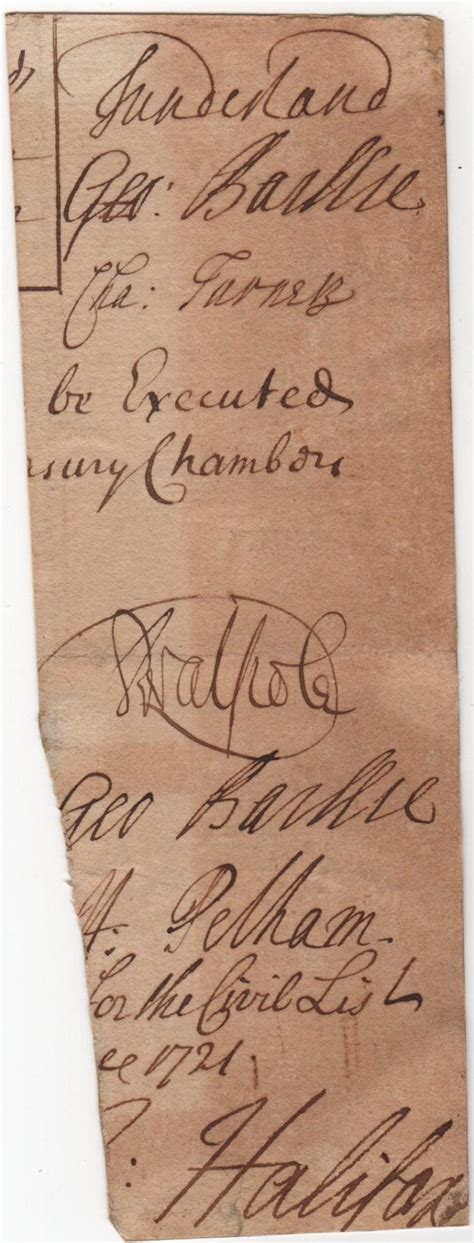 Sunderland
Geo: Baillie
Cha: Turner
be Executed
asury Chambers
RWalpole
Geo Baillie
H: Pelham
for the Civil List
1721.
: Halifax